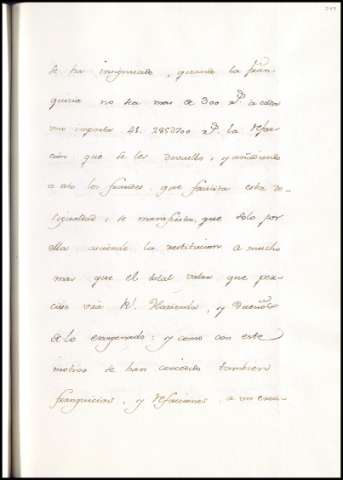 se ha insinuado, quando la fran
quicia no ha mas de 300 rs. a cada
uno importa 41. 285 rs. la Refac
cion que se les devuelve, y añadiendo
a esto los fraudes, que facilita esta de
sigualdad, se manifiesta que solo por
ella asciende la restitucion a mucho
mas que el total valor que per
ciben via Rl. Hacienda, y Dueños
de lo enagenado: y como con este
motivo se han concedido tambien
franquicias, y Refacciones, a un